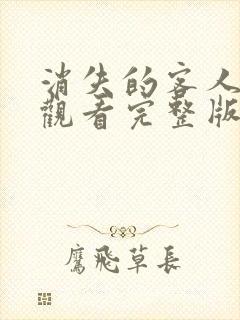 消失的客人
觀看完整版
鷹飛草長